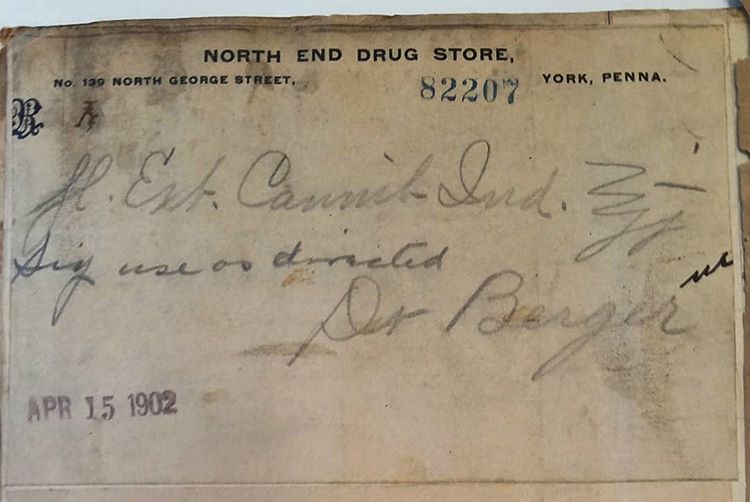 NORTH END DRUG STORE,
No. 139 NORTH GEORGE STREET, 82207 YORK, PENNA.
℞
fl. Ext. Cannib Ind.
Sig use as directed
Dr Berger
APR 15 1902